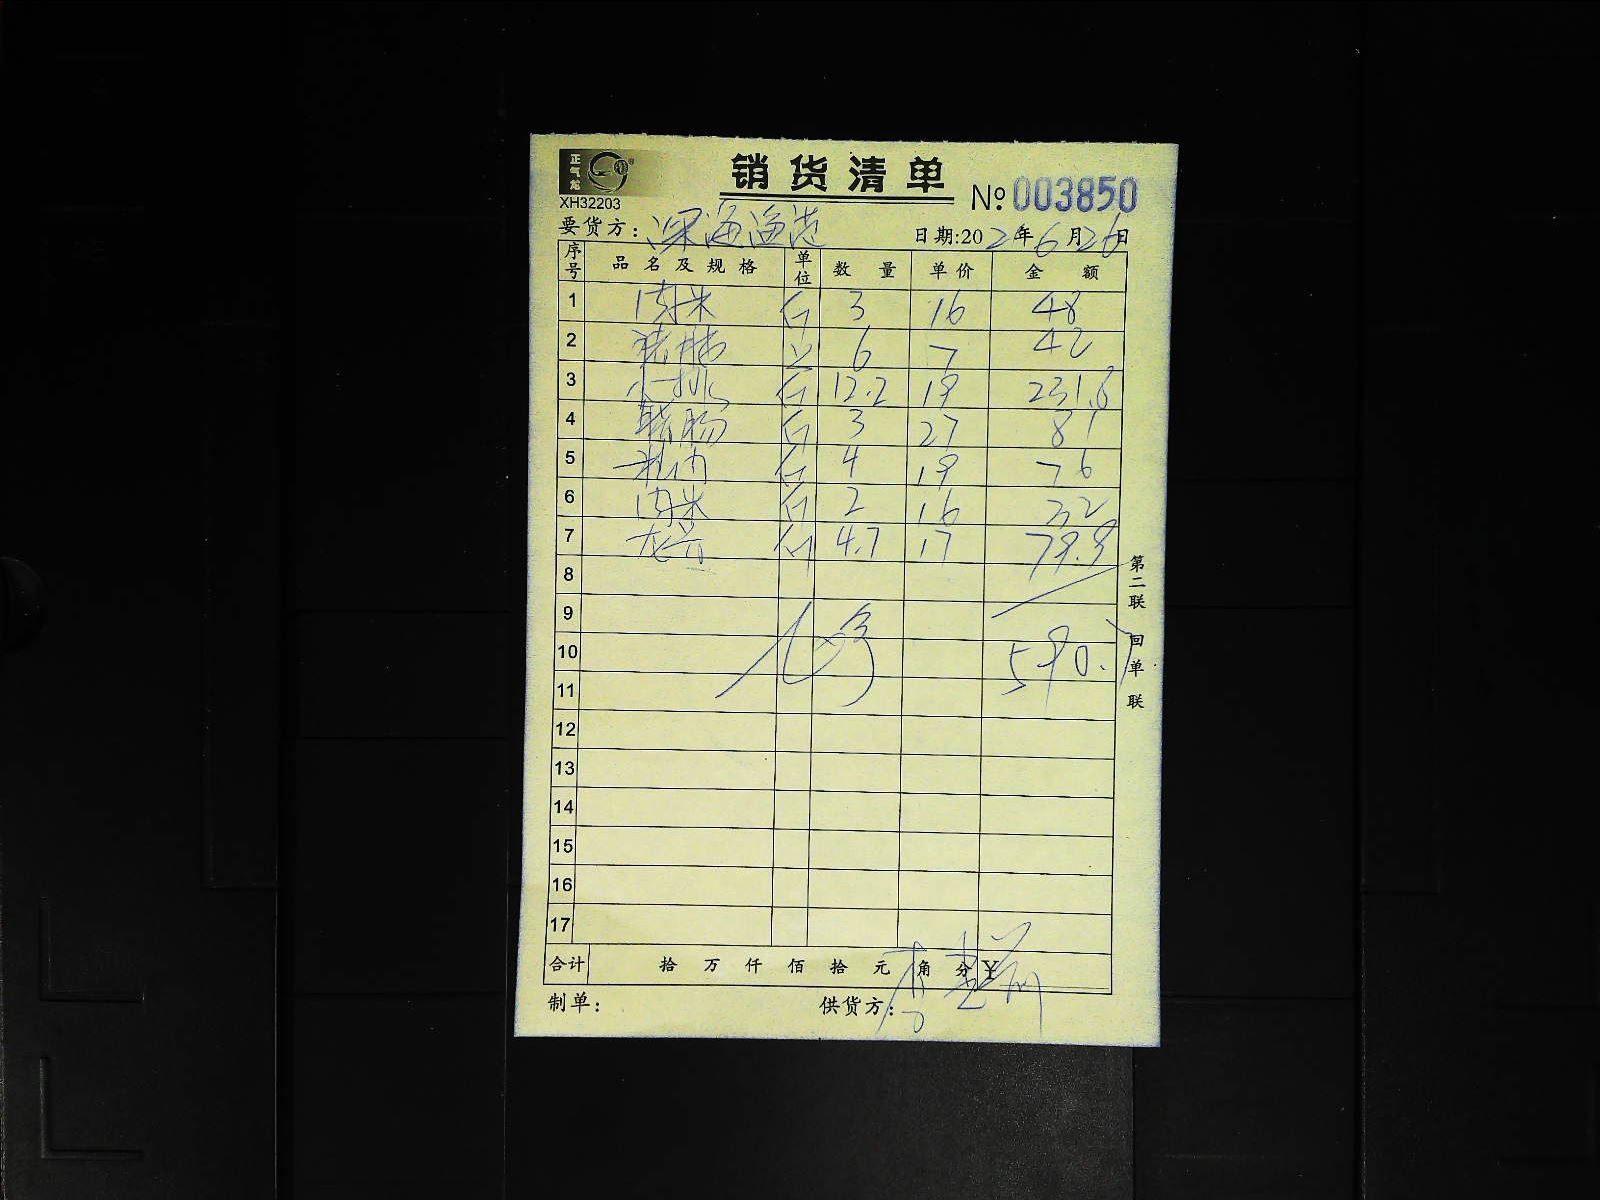 正气龙
XH32203
销货清单
№ 003850
要货方: 深海渔港
日期:202年6月26日
序号 品名及规格 单位 数量 单价 金额
1 肉米 斤 3 16 48
2 6 7 42
3 小排 斤 12.2 19 231.8
4 斤 3 27 81
5 斤 4 19 76
6 肉米 斤 2 16 32
7 斤 4.7 17 79.9
8
9
10 590.7
11
12
13
14
15
16
17
合计 拾 万 仟 佰 拾 元 角 分 ¥
制单: 供货方:
第二联 回单联